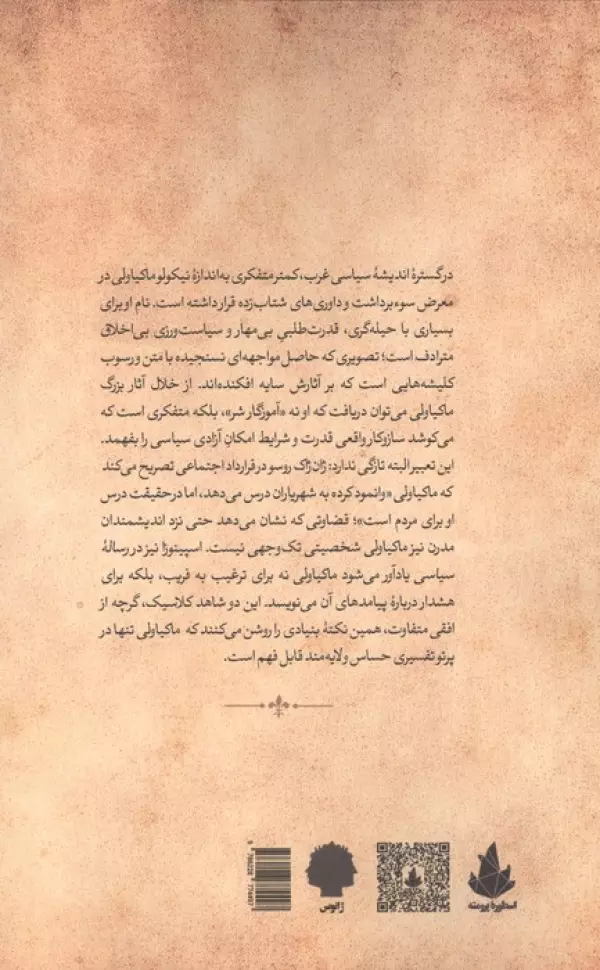 در گسترهٔ اندیشهٔ سیاسی غرب، کمتر متفکری به‌اندازهٔ نیکولو ماکیاولی در
معرض سوءبرداشت و داوری‌های شتاب‌زده قرار داشته است. نام او برای
بسیاری با حیله‌گری، قدرت‌طلبیِ بی‌مهار و سیاست‌ورزی بی‌اخلاق
مترادف است؛ تصویری که حاصل مواجهه‌ای نسنجیده با متن و رسوب
کلیشه‌هایی است که بر آثارش سایه افکنده‌اند. از خلال آثار بزرگ
ماکیاولی می‌توان دریافت که او نه «آموزگار شر»، بلکه متفکری است که
می‌کوشد سازوکار واقعی قدرت و شرایط امکانِ آزادی سیاسی را بفهمد.
این تعبیر البته تازگی ندارد: ژان ژاک روسو در قرارداد اجتماعی تصریح می‌کند
که ماکیاولی «وانمود کرده به شهریاران درس می‌دهد، اما در حقیقت درس
او برای مردم است»؛ قضاوتی که نشان می‌دهد حتی نزد اندیشمندان
مدرن نیز ماکیاولی شخصیتی تک‌وجهی نیست. اسپینوزا نیز در رسالهٔ
سیاسی یادآور می‌شود ماکیاولی نه برای ترغیب به فریب، بلکه برای
هشدار دربارهٔ پیامدهای آن می‌نویسد. این دو شاهد کلاسیک، گرچه از
افقی متفاوت، همین نکتهٔ بنیادی را روشن می‌کنند که ماکیاولی تنها در
پرتو تفسیری حساس و لایه‌مند قابل فهم است.
اسطورهٔ پرومته
ژانوس